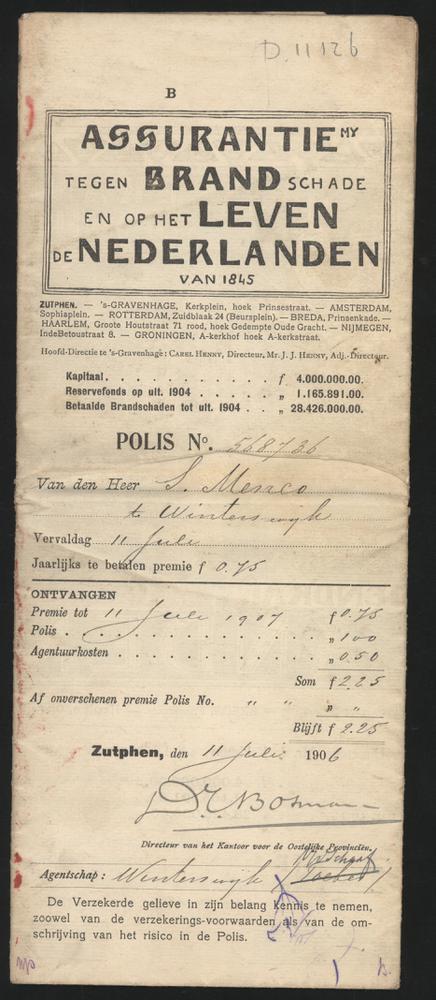 D.11126
B
ASSURANTIE MY
TEGEN BRAND SCHADE
EN OP HET LEVEN
DE NEDERLANDEN
VAN 1845
ZUTPHEN. — 's-GRAVENHAGE, Kerkplein, hoek Prinsestraat. — AMSTERDAM,
Sophiaplein. — ROTTERDAM, Zuidblaak 24 (Beursplein). — BREDA, Prinsenkade. —
HAARLEM, Groote Houtstraat 71 rood, hoek Gedempte Oude Gracht. — NIJMEGEN,
IndeBetoustraat 8. — GRONINGEN, A-kerkhof hoek A-kerkstraat.
Hoofd-Directie te 's-Gravenhage: CAREL HENNY, Directeur, Mr. J. J. HENNY, Adj.-Directeur.
Kapitaal . . . . . . . . . . . . f 4.000.000.00.
Reservefonds op ult. 1904 . . . . . . . „ 1.165.891.00.
Betaalde Brandschaden tot ult. 1904 . . „ 28.426.000.00.
POLIS No. 568736
Van den Heer S. Menco
te Winterswijk
Vervaldag 11 Juli
Jaarlijks te betalen premie f 0.75
ONTVANGEN
Premie tot 11 Juli 1907 f 0.75
Polis . . . . . . . . . . „ 1.00
Agentuurkosten . . . . . . . . . . „ 0.50
Som f 2.25
Af onverschenen premie Polis No. „ „ „ „
Blijft f 2.25
Zutphen, den 11 Juli 1906
Bosman
Directeur van het Kantoor voor de Oostelijke Provinciën.
Agentschap: Winterswijk
De Verzekerde gelieve in zijn belang kennis te nemen,
zoowel van de verzekerings-voorwaarden als van de om-
schrijving van het risico in de Polis.